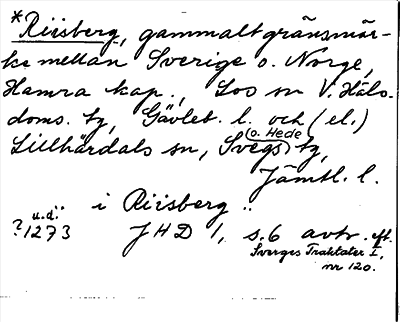 *Riisberg, gammalt gränsmär-
ke mellan Sverige o. Norge,
Hamra kap., Los sn V. Häls.
doms. tg, Gävleb. l. och (el.)
Lillhärdals sn, Svegs (o. Hede) tg,
Jämtl. l.
i Riisberg ..
u.d.:
?1273 JHD 1, s.6 avtr. eft.
Sverges Traktater I,
nr 120.